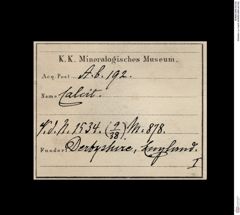 K. K. Mineralogisches Museum.
Acq. Post A.b. 192.
Name Calcit.
V.d.N. 1534. (9/38) M. 878.
Fundort Derbyshire, England.
I